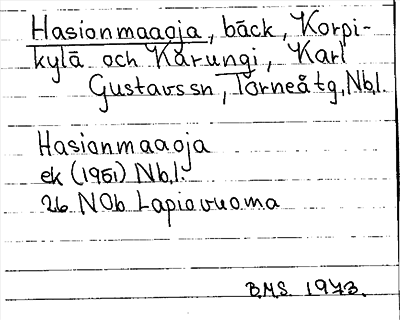 Hasionmaaoja, bäck, Korpi-
kylä och Karungi, Karl
Gustavs sn, Torneå tg, Nb.l.
Hasionmaaoja
ek (1951) Nb.l.
26 NOb Lapiovuoma
B.M.S. 1973.